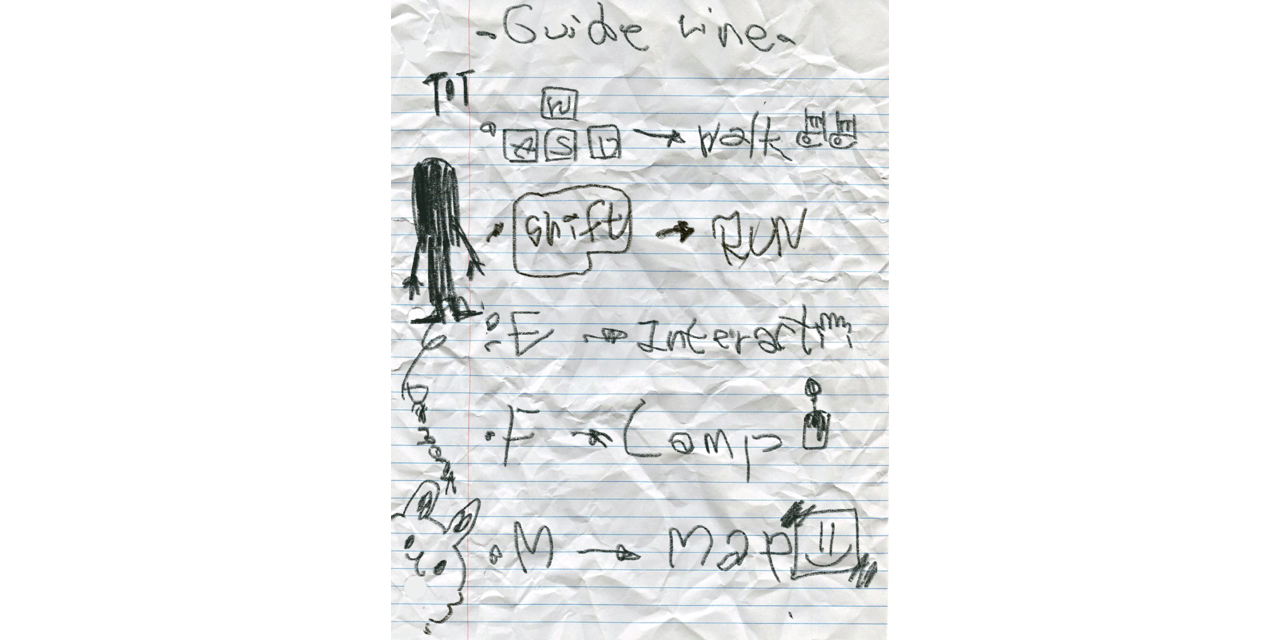 -Guide Line-
TOT
W
A S D → Walk
Shift → RUN
E → Interact
F → Lamp
M → Map